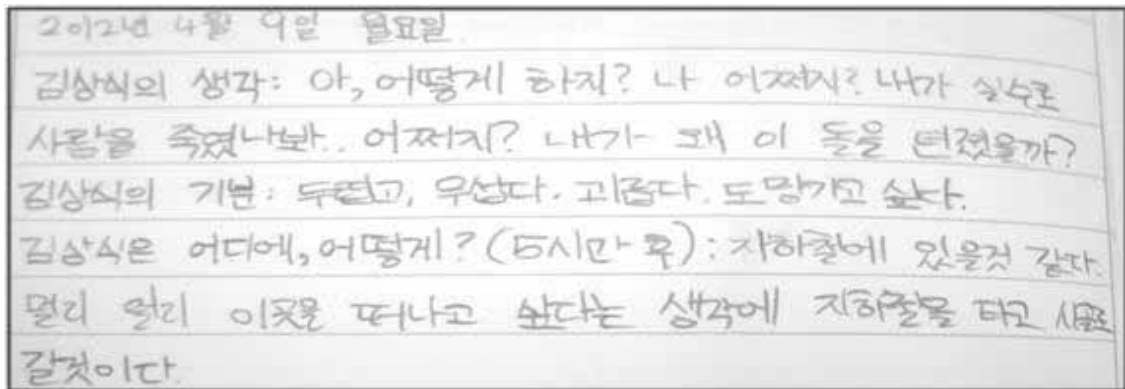 2012년 4월 9일 월요일.
김상식의 생각: 아, 어떻게 하지? 나 어쩌지? 내가 실수로
사람을 죽였나봐.. 어쩌지? 내가 왜 이 돌을 던졌을까?
김상식의 기분: 두렵고, 무섭다. 괴롭다. 도망가고 싶다.
김상식은 어디에, 어떻게? (5시간 후): 지하철에 있을것 같다.
멀리 멀리 이곳을 떠나고 싶다는 생각에 지하철을 타고 시골로
갈것이다.